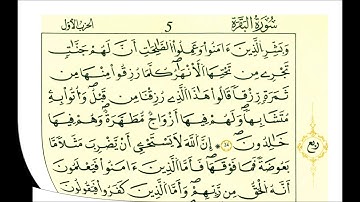 سُورَةُ الْبَقَرَةِ 5 الحزب الأول
وَبَشِّرِ الَّذِينَ ءَامَنُوا وَعَمِلُوا الصَّالِحَاتِ أَنَّ لَهُمْ جَنَّاتٍ
تَجْرِي مِن تَحْتِهَا الْأَنْهَارُ كُلَّمَا رُزِقُوا مِنْهَا مِن
ثَمَرَةٍ رِّزْقًا قَالُوا هَٰذَا الَّذِي رُزِقْنَا مِن قَبْلُ وَأُتُوا بِهِ
مُتَشَابِهًا وَلَهُمْ فِيهَا أَزْوَاجٌ مُّطَهَّرَةٌ وَهُمْ فِيهَا
خَالِدُونَ إِنَّ اللَّهَ لَا يَسْتَحْيِي أَن يَضْرِبَ مَثَلًا مَّا
ربع
بَعُوضَةً فَمَا فَوْقَهَا فَأَمَّا الَّذِينَ ءَامَنُوا فَيَعْلَمُونَ
أَنَّهُ الْحَقُّ مِن رَّبِّهِمْ وَأَمَّا الَّذِينَ كَفَرُوا فَيَقُولُونَ